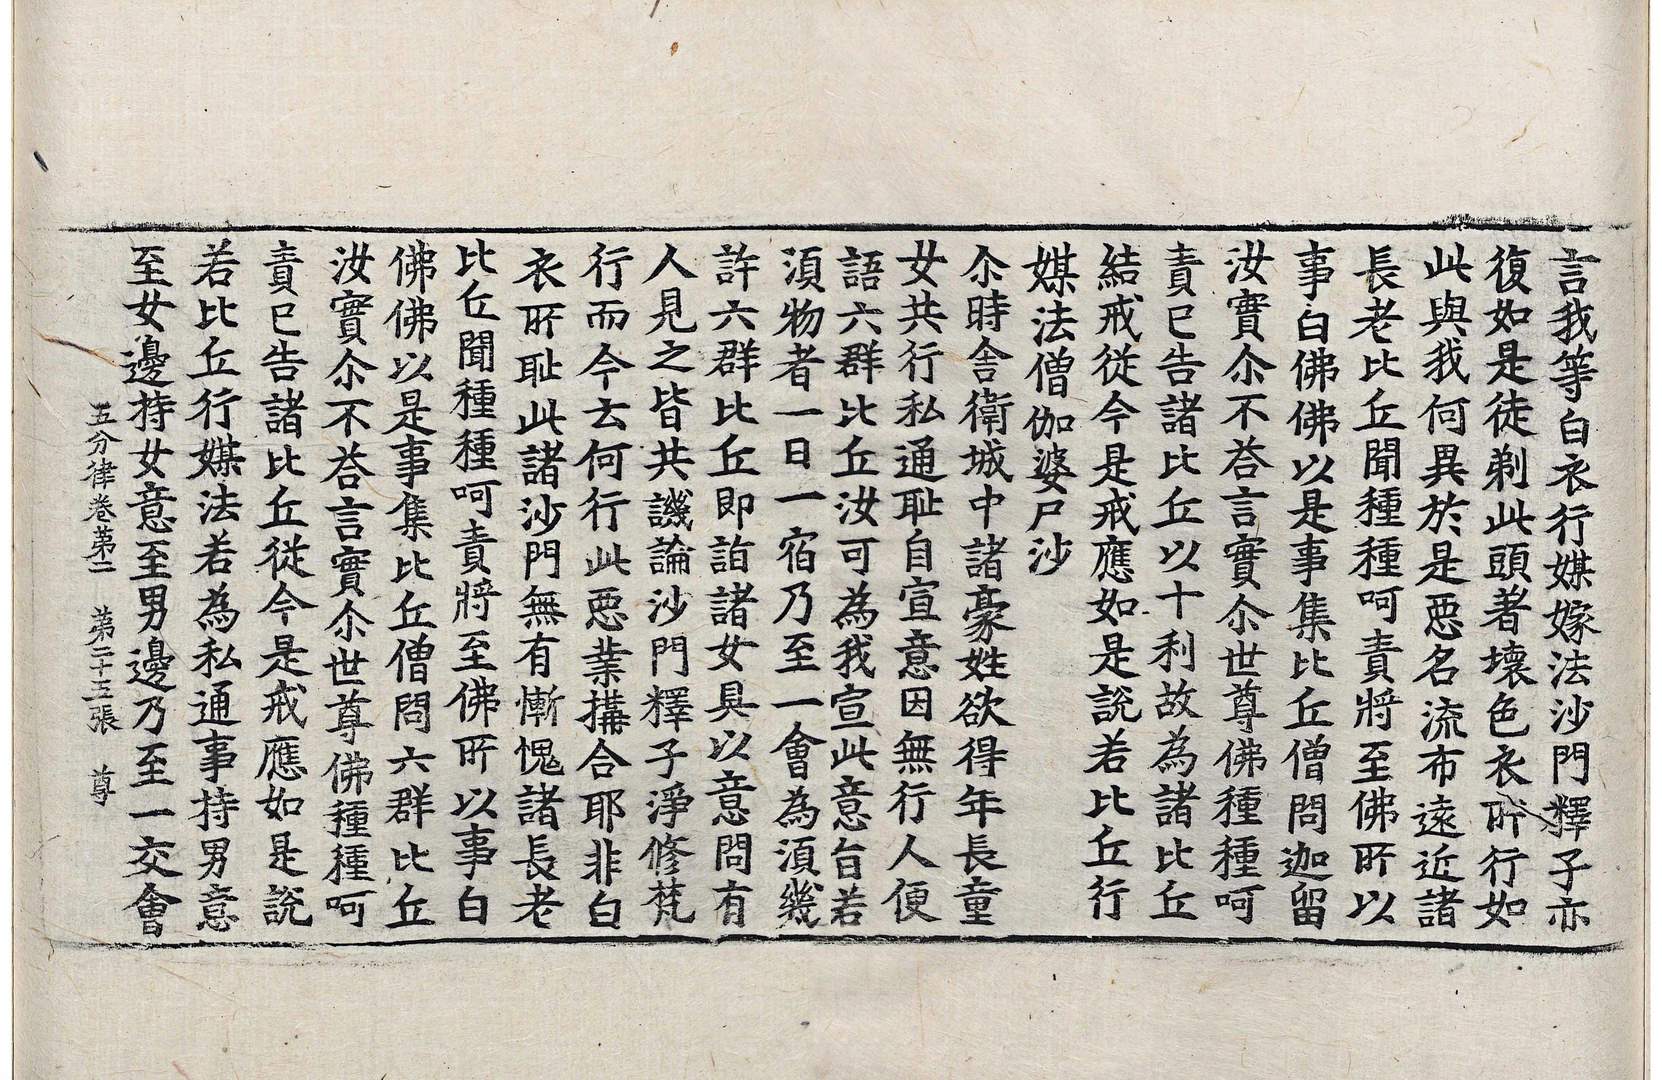 言我等白衣行媒嫁法沙門釋子亦
復如是徒剃此頭著壞色衣所行如
此與我何異於是惡名流布遠近諸
長老比丘聞種種呵責將至佛所以
事白佛佛以是事集比丘僧問迦留
汝實尒不荅言實尒世尊佛種種呵
責已告諸比丘以十利故為諸比丘
結戒從今是戒應如是說若比丘行
媒法僧伽婆尸沙
尒時舍衛城中諸豪姓欲得年長童
女共行私通恥自宣意因無行人便
語六群比丘汝可為我宣此意旨若
須物者一日一宿乃至一會為須幾
許六群比丘即詣諸女具以意問有
人見之皆共譏論沙門釋子淨修梵
行而今云何行此惡業搆合耶非白
衣所恥此諸沙門無有慚愧諸長老
比丘聞種種呵責將至佛所以事白
佛佛以是事集比丘僧問六群比丘
汝實尒不荅言實尒世尊佛種種呵
責已告諸比丘從今是戒應如是說
若比丘行媒法若為私通事持男意
至女邊持女意至男邊乃至一交會
五分律卷第二　第二十五張　尊